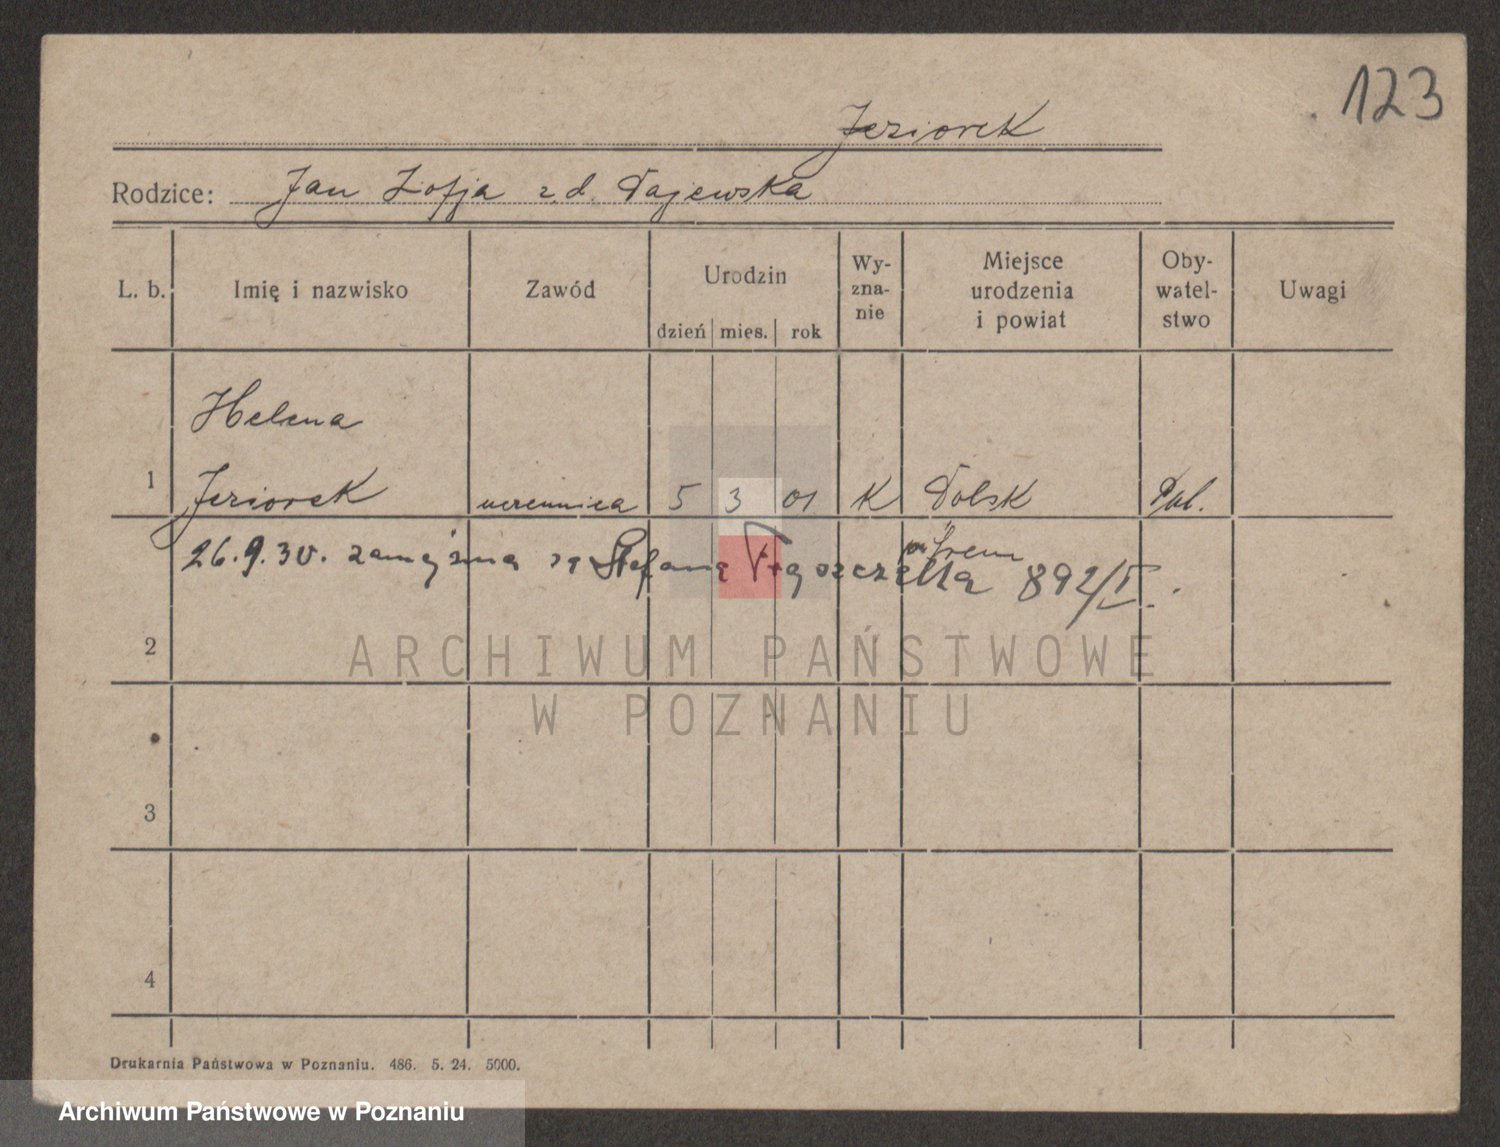 123
Jeziorek
Rodzice: Jan Zofja z.d. Dajewska
L. b. Imię i nazwisko Zawód Urodzin dzień mies. rok Wy-zna-nie Miejsce urodzenia i powiat Oby-watel-stwo Uwagi
Helena
1 Jeziorek uczennica 5 3 01 K Dolsk Pol.
Śrem
26.9.30. zamężna za Stefana 892/I.
2
ARCHIWUM PAŃSTWOWE
W POZNANIU
3
4
Drukarnia Państwowa w Poznaniu. 486. 5. 24. 5000.
Archiwum Państwowe w Poznaniu